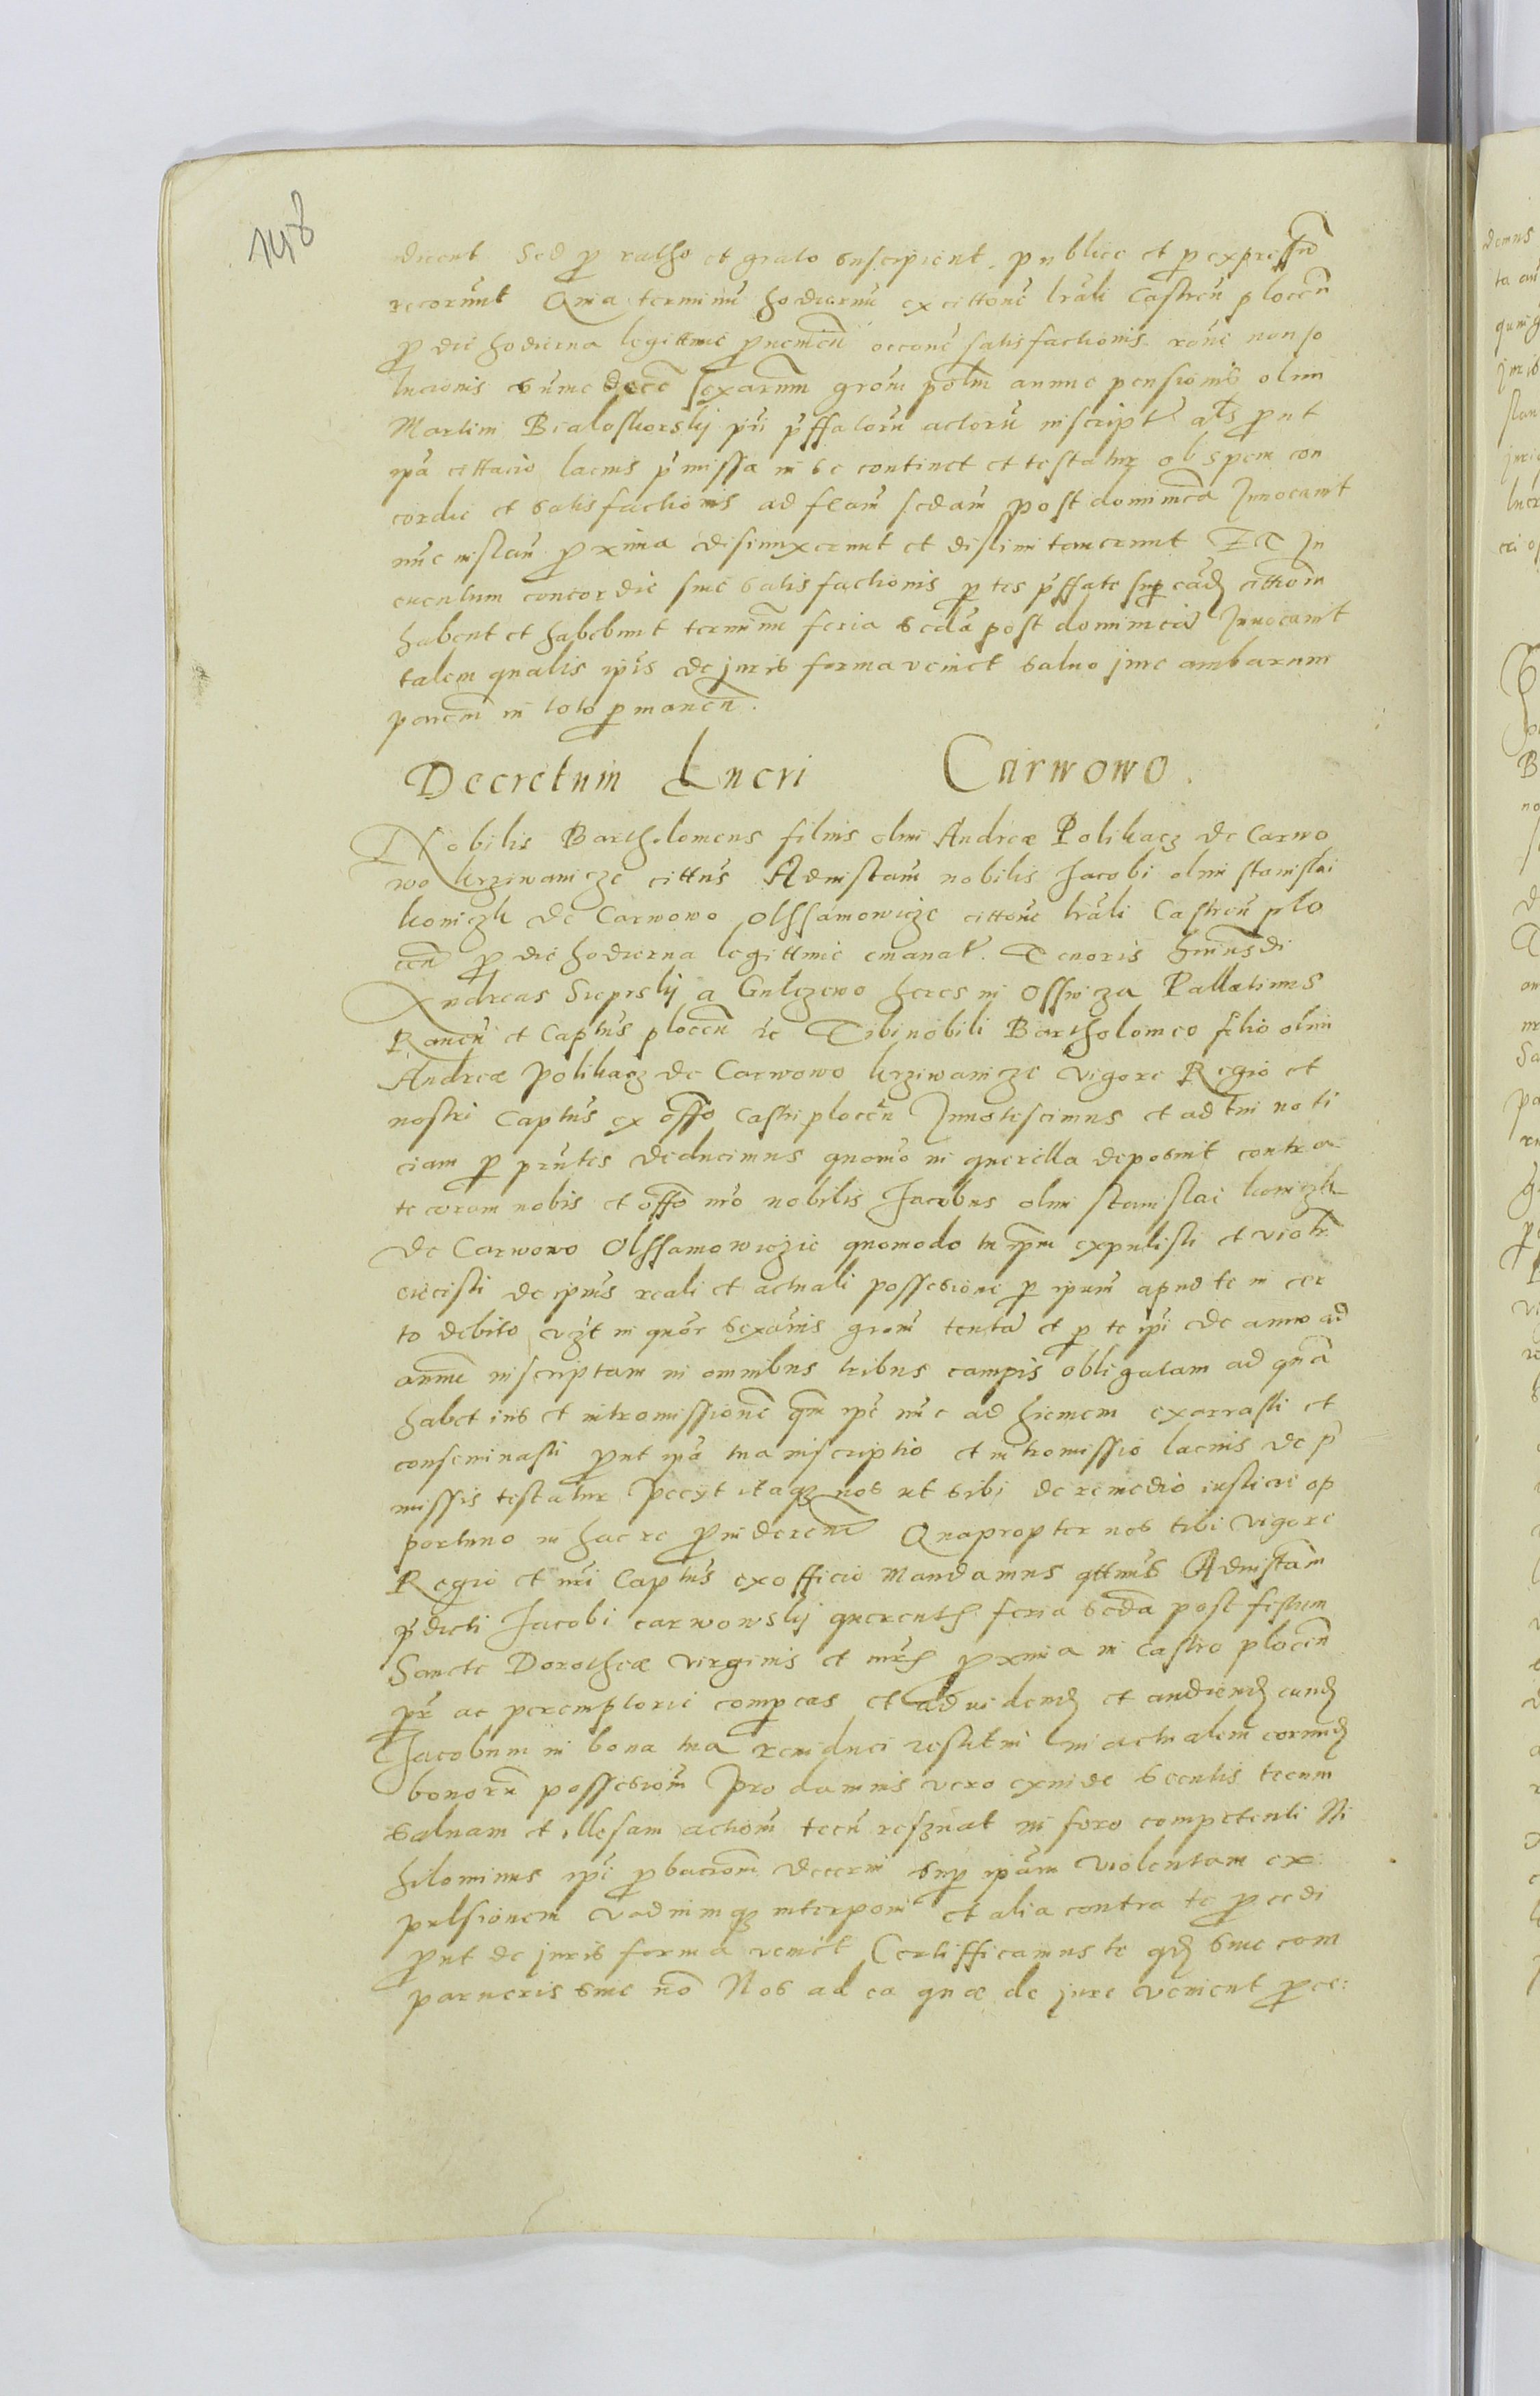 148
dicent Sed p ratho et grato suscipient. publice et p expressū
recorūnt Quia terminū hodiernū ex cittone lrāli Castreñ plocen̄
p die hodierna legittime pnemen̄ occone satisfactionis rone non so
lucionis sume dece sexarum grom polm annue pensionis olim
Martini Bialoskorskij pii pffatorū actorū inscript als prout
ipa cittacio lacius pmissa in se continet et testatur ob spem con
cordie et satisfactionis ad feam sedam post dominicā Innocauit
nūc instan pxima disiunxerunt et distinitauerunt Et In
euentum concordie siue satisfactionis ptes pffate sup eadē cittoem
habent et habebunt terminum feria seda post dominicā Inuocauit
talem qualis ipis de juris forma veniet saluo jure ambarum
parcm in toto pmanen.
Decretum Lucri Carwowo.
Nobilis Bartholomeus filius olim Andreæ Polikacz de Carwo
wo krziwanicze cittus Ad instam nobilis Jacobi olim stanislai
koniczk de Carwowo Olssamowicze cittone lrāli Castren plo
cen p die hodierna legittime emanat. Tenoris huiusdi
Andreas Sieprskij a Gulczewo heres in Osswicza Pallatinus
Rauen et Captus plocen ʒc Tibi nobili Bartholomeo filio olim
Andreæ Polikacz de Carwowo krziwanicze vigore Regio et
nostri Captus ex offo Castri plocen Innotescimus et ad tui noti
ciam p pntes deducimus quomo in querella deposuit contra
te coram nobis et offo nro nobilis Jacobus olim stanislai koniczk
de Carwowo Olssamowiczie quomodo tu ipm expulisti et violr
eiecisti de ipius reali et actuali possesione p ipum apud te in cer
to debito vzt in quor sexāīs grom tenta et p te ipi de anno ad
annū inscriptam in omnibus tribus campis obligatam ad quā
habet ius et intromissione qm ipe nūc ad hiemem exarrasti et
conseminasti put ipa tua inscriptio et intromissio lacius de p
missis testatur Pecyt itaqz nos ut sibi de remedio iusticie op
portuno in hac re puiderem Quapropter nos tibi vigore
Regio et nri Captus ex officio Mandamus qttnus Ad instam
pdicti Jacobi carwowskij querentis feria secda post festum
Sancte Dorotheæ virginis et mris pxima in Castro plocen
pr ac peremptorie compeas et ad uidend et audiend eund
Jacobum in bona tua reinduci restitui in actualem eorund
bonorū possesiom Pro damnis vero exinde secutis tecum
saluam et illesam actiom tecū reszuat in foro competenti Ni
hilominus ipi pbacioem decerni sup ipam violentam ex
pulsionem vadiumqz interponi et alia contra te pcedi
put de juris forma veniet Certifficamus te qd siue com
parueris siue no Nos ad ea quæ de jure venient pce: